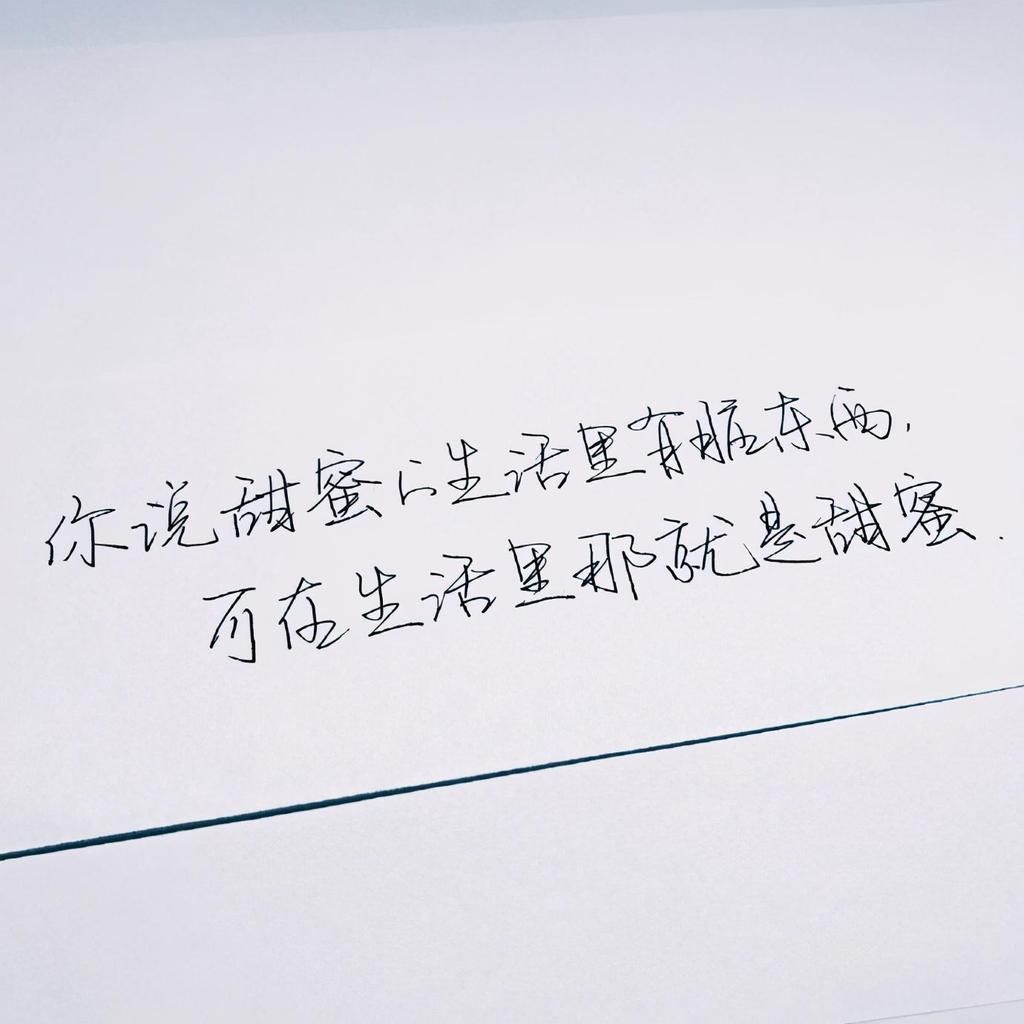 你说甜蜜的生活里有脏东西.
可在生活里那就是甜蜜.